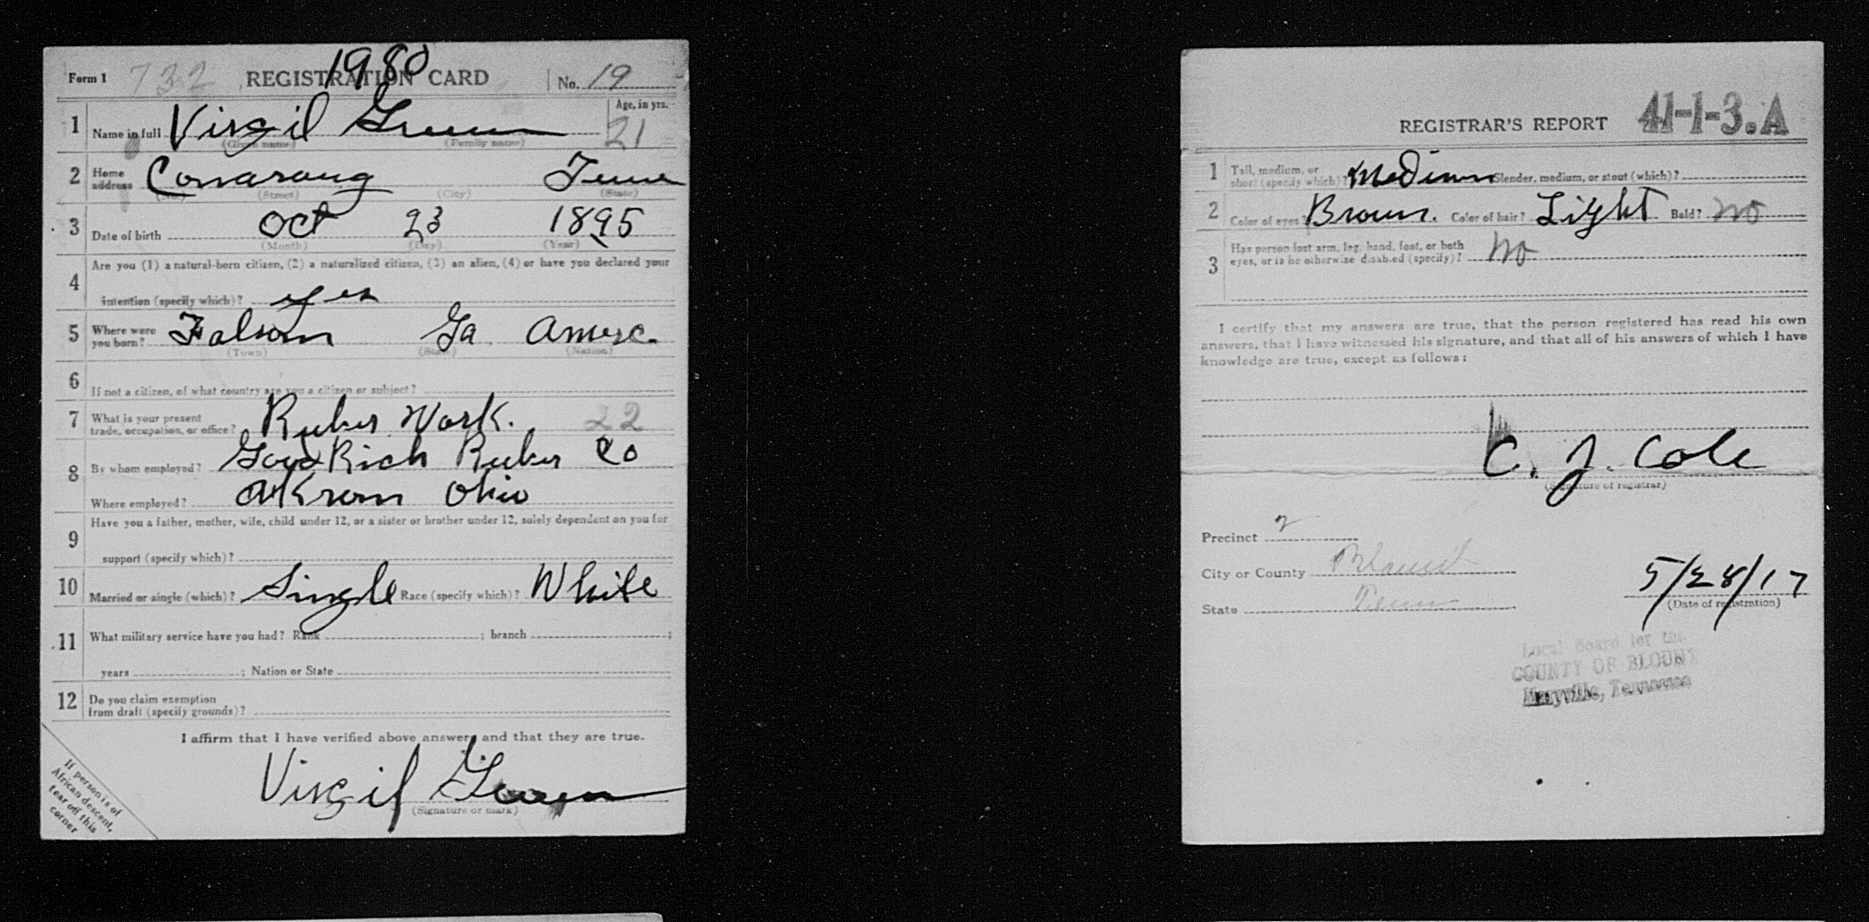 1980
Form 1 732 REGISTRATION CARD No. 19
1 Name in full Virgil Green Age, in yrs. 21
(Given name) (Family name)
2 Home address Tenn
(No.) (Street) (City) (State)
3 Date of birth Oct 23 1895
(Month) (Day) (Year)
4 Are you (1) a natural-born citizen, (2) a naturalized citizen, (3) an alien, (4) or have you declared your
intention (specify which)? yes
5 Where were you born? Folsom Ga Americ.
(Town) (State) (Nation)
6 If not a citizen, of what country are you a citizen or subject?
7 What is your present trade, occupation, or office? Ruber Work. 22
8 By whom employed? Good Rich Ruber Co
Where employed? Akrom Ohio
9 Have you a father, mother, wife, child under 12, or a sister or brother under 12, solely dependent on you for
support (specify which)?
10 Married or single (which)? Single Race (specify which)? White
11 What military service have you had? Rank ; branch ;
years ; Nation or State
12 Do you claim exemption from draft (specify grounds)?
I affirm that I have verified above answers and that they are true.
Virgil Green
(Signature or mark)
If person is of
African descent,
tear off this
corner
REGISTRAR'S REPORT 41-1-3.A
1 Tall, medium, or short (specify which)? Medium Slender, medium, or stout (which)?
2 Color of eyes? Brown. Color of hair? Light Bald? No
3 Has person lost arm, leg, hand, foot, or both eyes, or is he otherwise disabled (specify)? No
I certify that my answers are true, that the person registered has read his own
answers, that I have witnessed his signature, and that all of his answers of which I have
knowledge are true, except as follows:
C. J. Cole
(Signature of registrar)
Precinct 2
City or County Blount
State Tenn
5/28/17
(Date of registration)
Local Board for the
COUNTY OF BLOUNT
Maryville, Tennessee